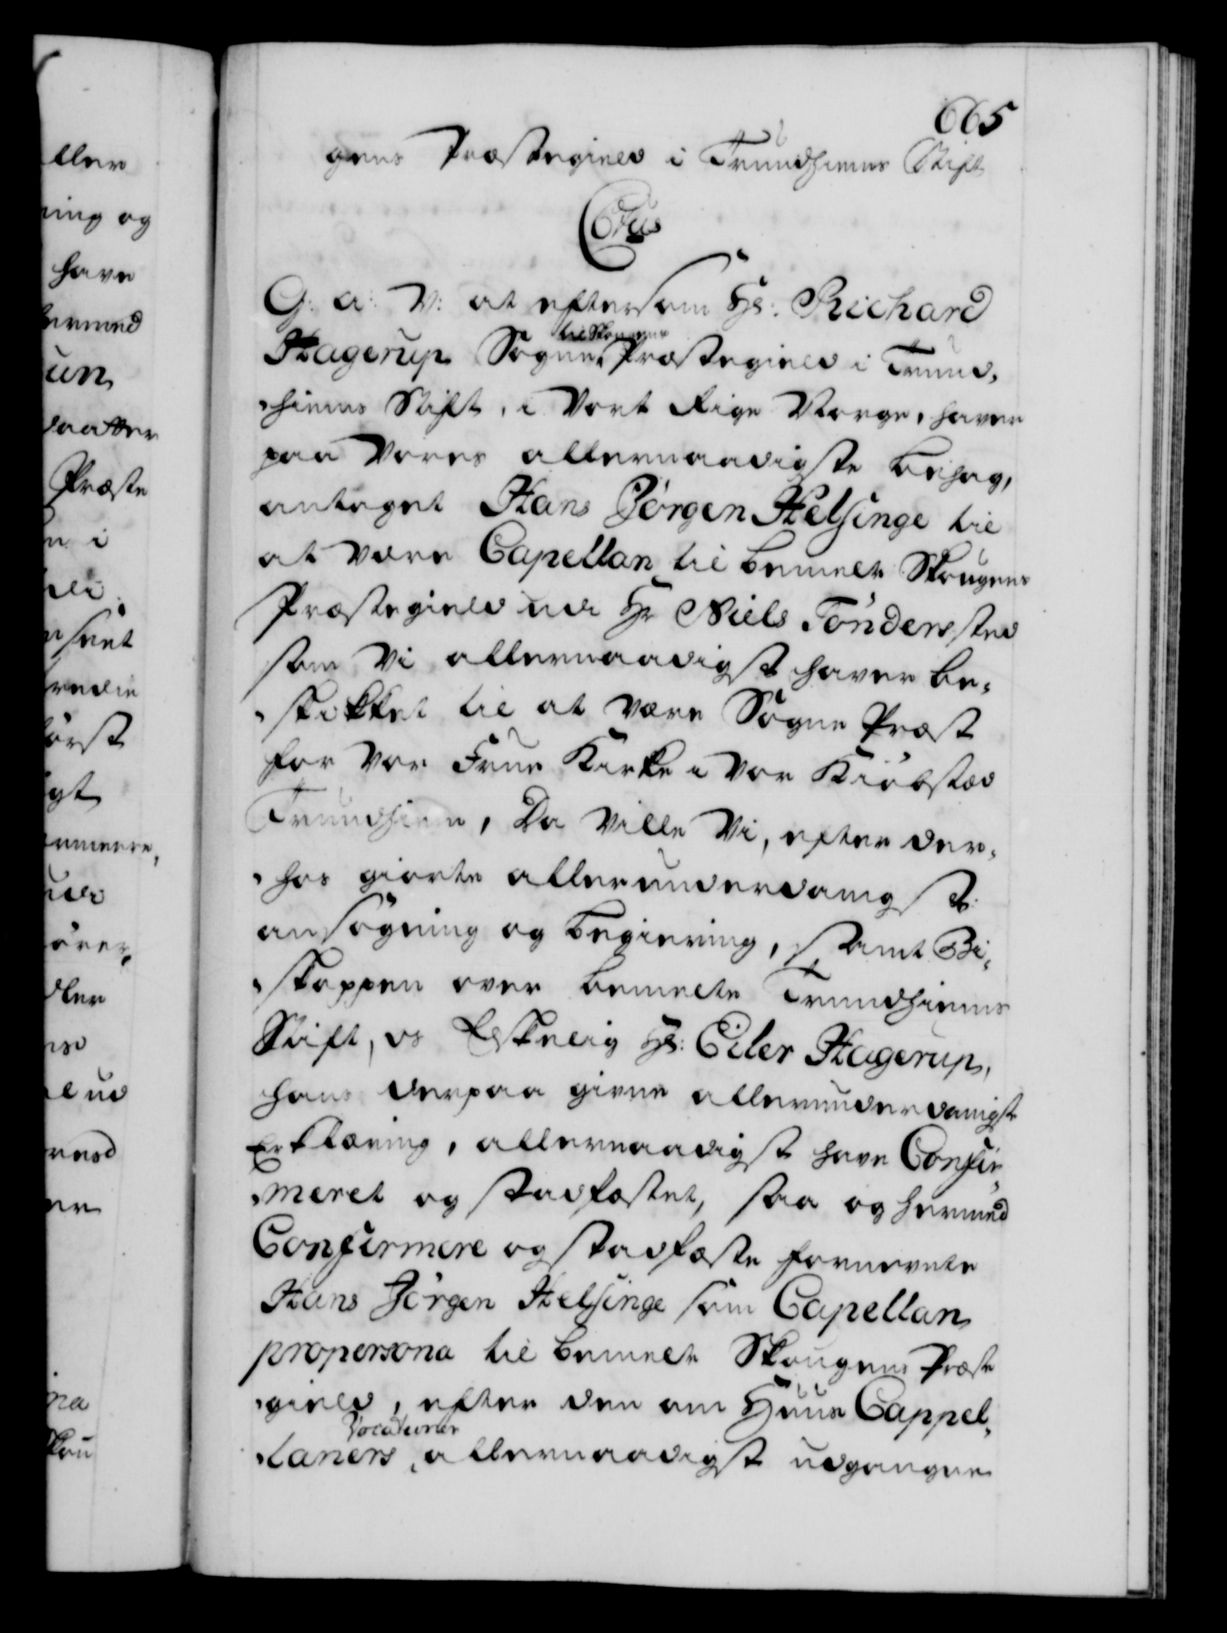 665
gens Præstegield i Trundhiems Stift
C6tus
G: a: V: at eftersom Hr: Richard
Hagerup Sogne Præst til Skougens Præstegield i Trund,
hiems Stift, i Vort Rige Norge, haver
paa Vores allernaadigste behag,
antaget Hans Jørgen Helsinge til
at være Capellan til bemelte Skougens
Præstegield udi Hr Niels Tønders sted
som Vi allernaadigst haver be,
skikket til at være Sogne Præst
for Vor Frue Kirke i Vor Kiøbstad
Trundhiem, Da Ville Vi, efter der,
hos giorte allerunderdanigst
ansøgning og begiering, samt Bi,
skoppen over bemelte Trundhiems
Stift, os Elskelig Hr: Eiler Hagerup,
hans derpaa givne allerunderdanigste
Erklæring, allernaadigst have Confir,
meret og stadfæstet, saa og hermed
Confirmere og stadfæste fornevnte
Hans Jørgen Helsinge som Capellan
propersona til bemelte Skougens Præste
gield, efter den om Huus Cappel,
laners Vocationer allernaadigst udgangne